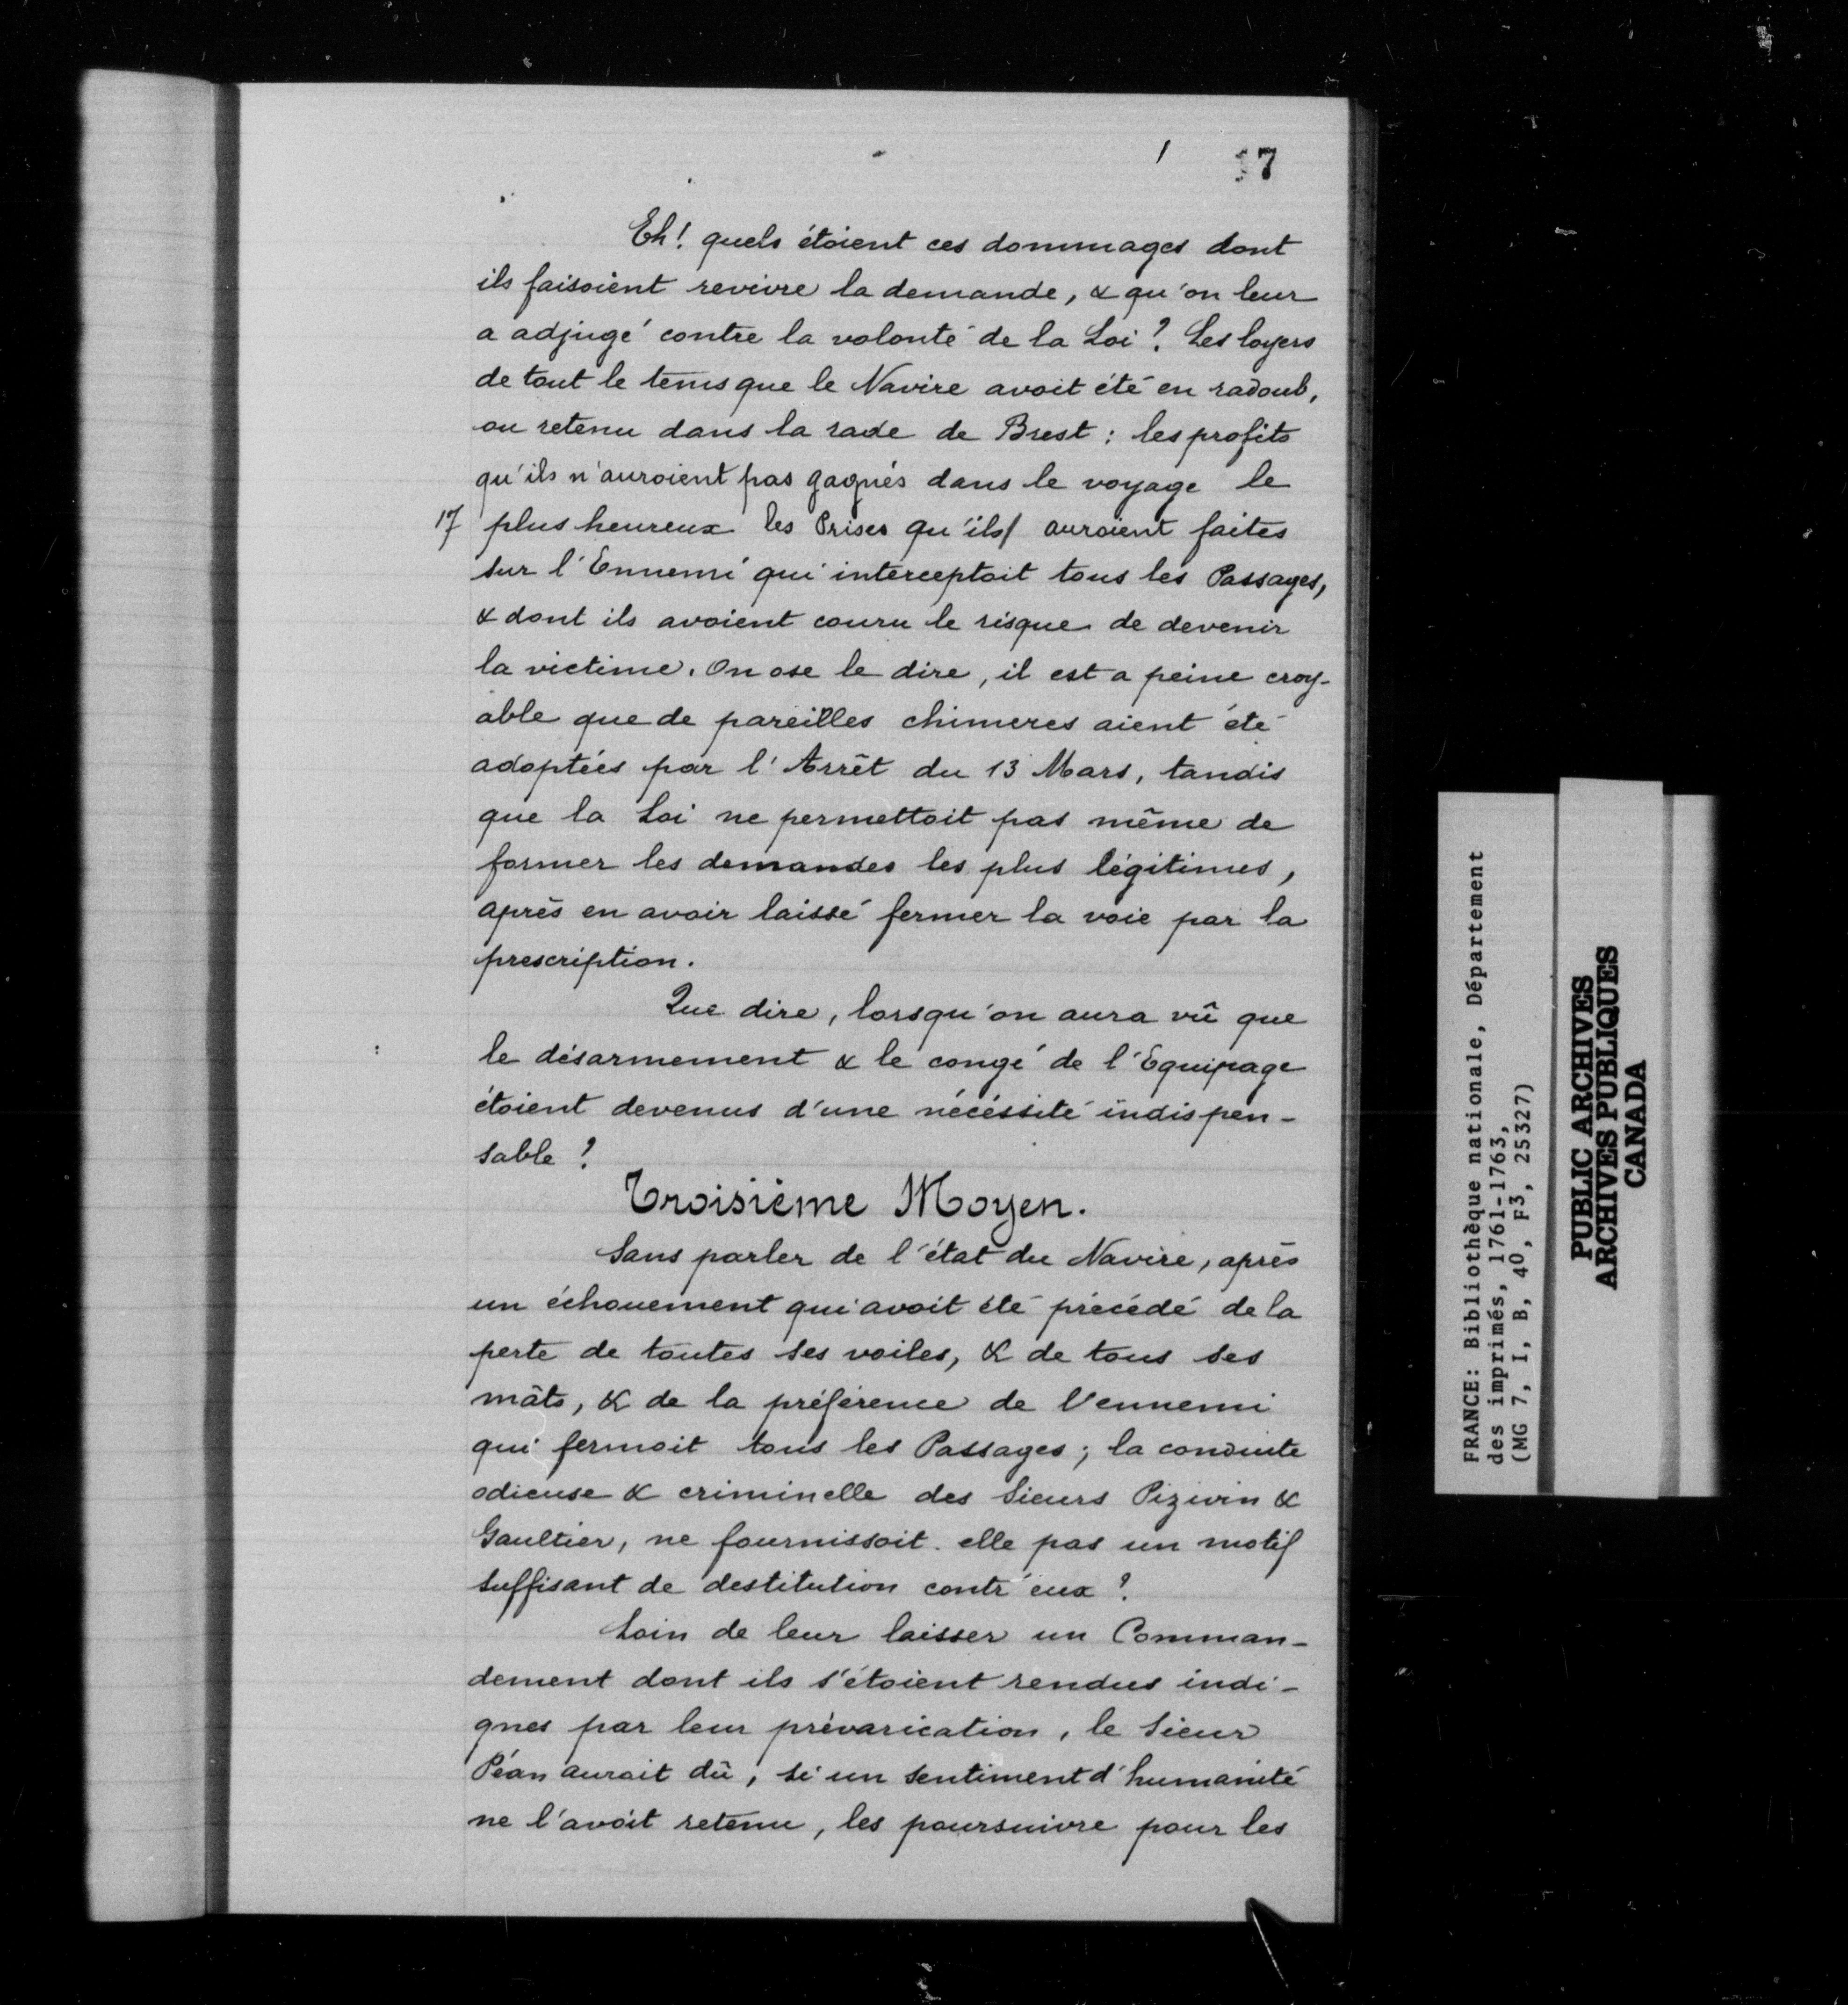 17
Eh! quels étoient ces dommages dont
ils faisoient revivre la demande, & qu'on leur
a adjugé contre la volonté de la Loi? Les loyers
de tout le tems que le Navire avoit été en radoub,
ou retenu dans la rade de Brest: les profits
qu'ils n'auroient pas gagnés dans le voyage le
17 plus heureux les Prises qu'ils/ auroient faites
sur l'Ennemi qui interceptoit tous les Passages,
& dont ils avoient couru le risque de devenir
la victime. On ose le dire, il est a peine croy-
able que de pareilles chimeres aient été
adoptées par l'Arrêt du 13 Mars, tandis
que la Loi ne permettoit pas même de
former les demandes les plus légitimes,
après en avoir laissé fermer la voie par la
prescription.
Que dire, lorsqu'on aura vû que
le désarmement & le congé de l'Equipage
étoient devenus d'une nécéssité indispen-
sable?
Troisième Moyen.
Sans parler de l'état du Navire, après
un échouement qui avoit été précédé de la
perte de toutes ses voiles, & de tous ses
mâts, & de la préférence de l'ennemi
qui fermoit tous les Passages; la conduite
odieuse & criminelle des Sieurs Pizivin &
Gaultier, ne fournissoit-elle pas un motif
suffisant de destitution contr'eux?
Loin de leur laisser un Comman-
dement dont ils s'étoient rendus indi-
gnes par leur prévarication, le Sieur
Péan aurait dû, si un sentiment d'humanité
ne l'avoit retenu, les poursuivre pour les
FRANCE: Bibliothèque nationale, Département
des imprimés, 1761-1763,
(MG 7, I, B, 40, F3, 25327)
PUBLIC ARCHIVES
ARCHIVES PUBLIQUES
CANADA